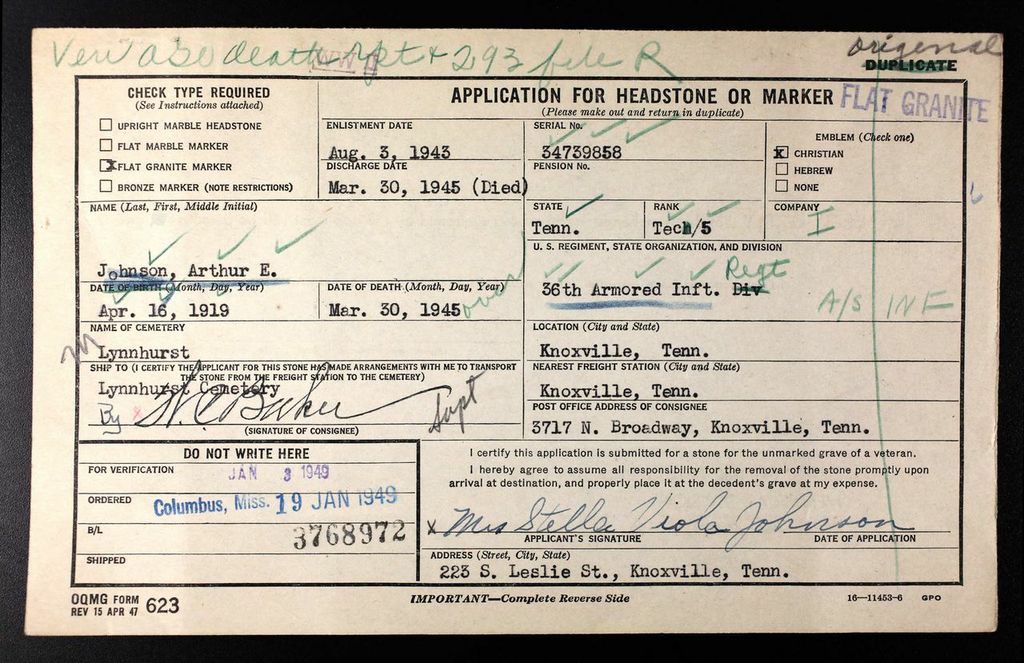 Veri also death rpt + 293 file R
WW II
original
DUPLICATE
CHECK TYPE REQUIRED
(See Instructions attached)
UPRIGHT MARBLE HEADSTONE
FLAT MARBLE MARKER
X FLAT GRANITE MARKER
BRONZE MARKER (NOTE RESTRICTIONS)
APPLICATION FOR HEADSTONE OR MARKER
FLAT GRANITE
(Please make out and return in duplicate)
ENLISTMENT DATE
Aug. 3, 1943
DISCHARGE DATE
Mar. 30, 1945 (Died)
SERIAL No.
34739858
PENSION No.
EMBLEM (Check one)
X CHRISTIAN
HEBREW
NONE
NAME (Last, First, Middle Initial)
Johnson, Arthur E.
STATE
Tenn.
RANK
Tech/5
COMPANY
I
U. S. REGIMENT, STATE ORGANIZATION, AND DIVISION
Regt
36th Armored Inft. Div
A/S INF
DATE OF BIRTH (Month, Day, Year)
Apr. 16, 1919
DATE OF DEATH (Month, Day, Year)
Mar. 30, 1945
over
NAME OF CEMETERY
Lynnhurst
LOCATION (City and State)
Knoxville, Tenn.
SHIP TO (I CERTIFY THE APPLICANT FOR THIS STONE HAS MADE ARRANGEMENTS WITH ME TO TRANSPORT
THE STONE FROM THE FREIGHT STATION TO THE CEMETERY)
Lynnhurst Cemetery
By W. C. Baker Supt
(SIGNATURE OF CONSIGNEE)
NEAREST FREIGHT STATION (City and State)
Knoxville, Tenn.
POST OFFICE ADDRESS OF CONSIGNEE
3717 N. Broadway, Knoxville, Tenn.
DO NOT WRITE HERE
FOR VERIFICATION
JAN 3 1949
ORDERED
Columbus, Miss. 19 JAN 1949
B/L
3768972
SHIPPED
I certify this application is submitted for a stone for the unmarked grave of a veteran.
I hereby agree to assume all responsibility for the removal of the stone promptly upon
arrival at destination, and properly place it at the decedent's grave at my expense.
x Mrs Stella Viola Johnson
APPLICANT'S SIGNATURE
DATE OF APPLICATION
ADDRESS (Street, City, State)
223 S. Leslie St., Knoxville, Tenn.
OQMG FORM
REV 15 APR 47 623
IMPORTANT—Complete Reverse Side
16—11453-6 GPO